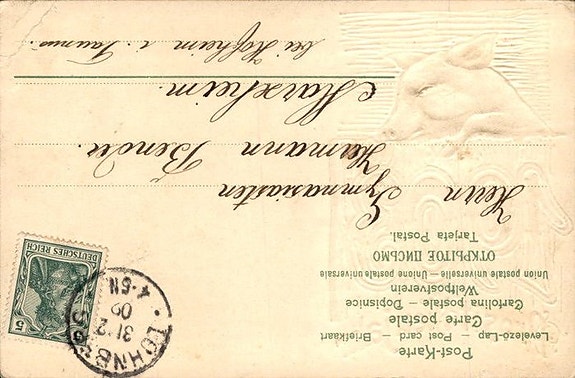 Post-Karte
Levelező-Lap — Post card — Briefkaart
Carte postale
Cartolina postale — Dopisnice
Weltpostverein
Union postale universelle — Unione postale universale
ОТКРЫТОЕ ПИСЬМО
Tarjeta Postal.
Herrn
Gymnasiasten
Hermann Bender.
Marxheim.
bei Hofheim i. Taunus.
DEUTSCHES REICH
5
31 12
09